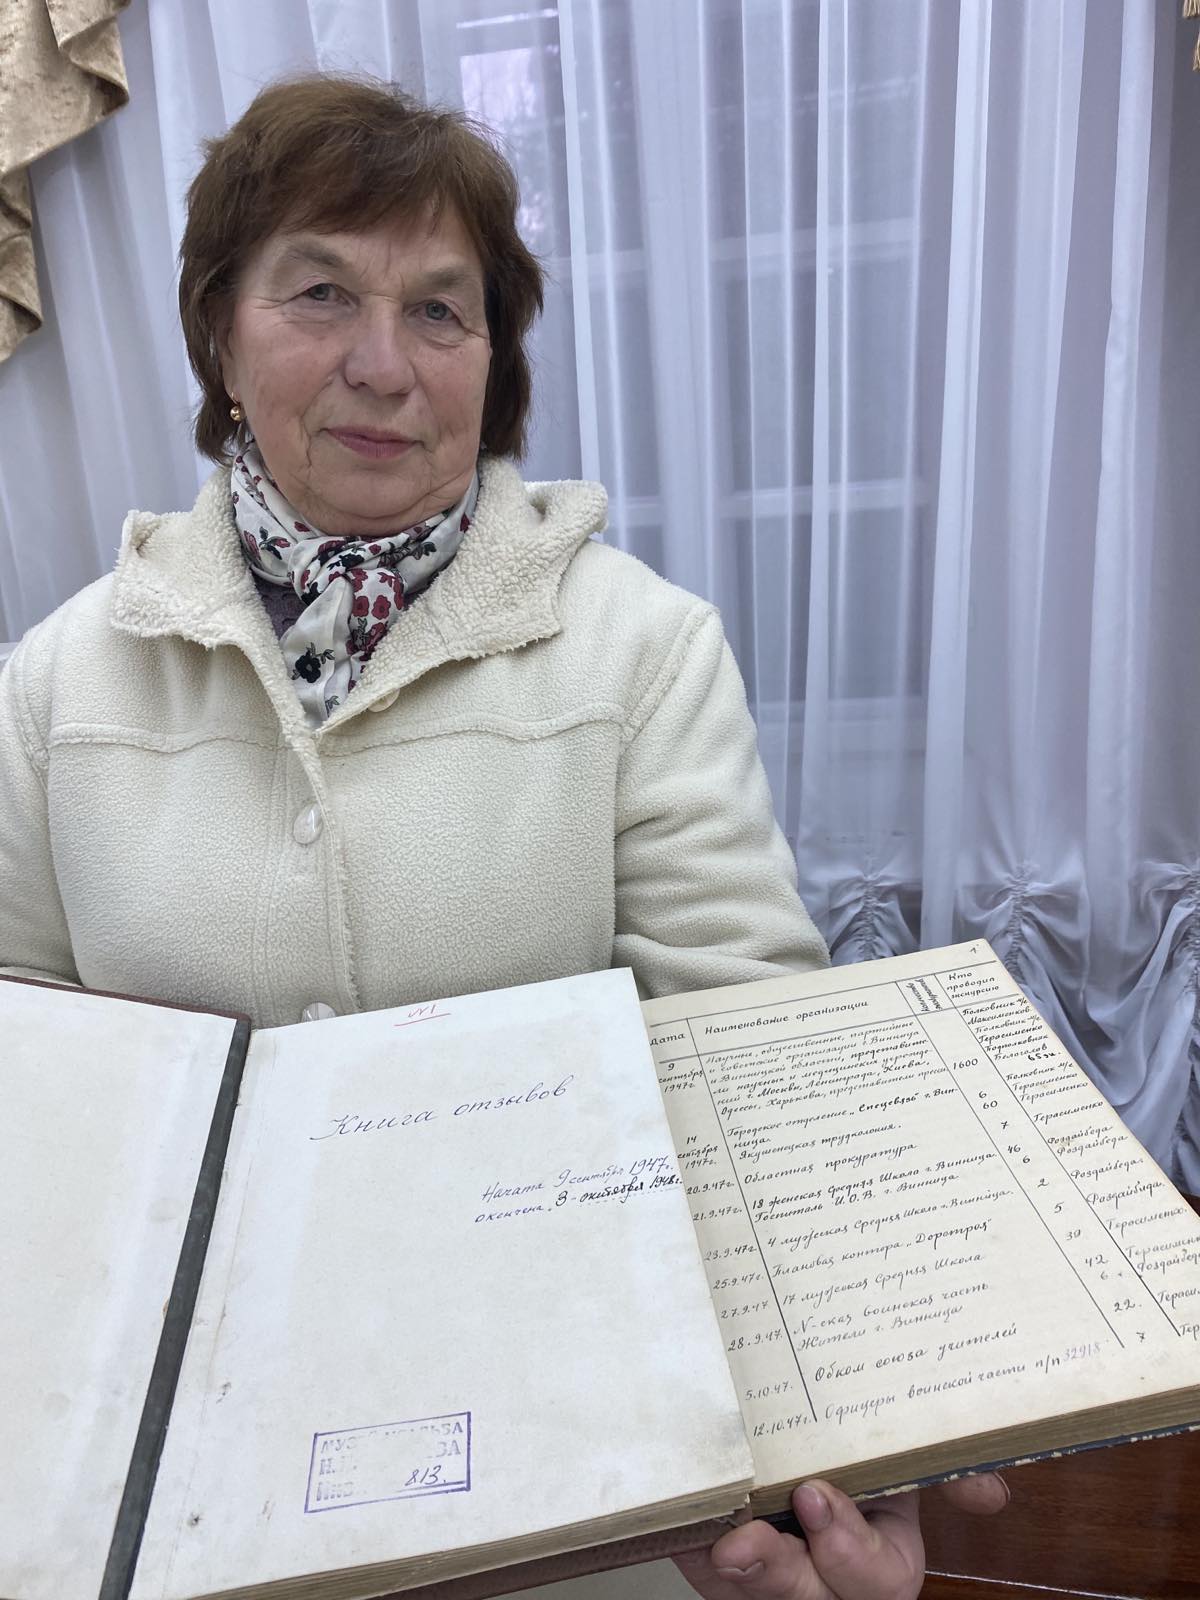 №1
Книга отзывов
Начата 9 сентября 1947 г.
окончена „3" октября 1948 г.
813.
1
Дата
Наименование организации
Количество
Кто проводил экскурсию
9 сентября 1947 г.
Научные, общественные, партийные
и советские организации г. Винница
и Винницкой области, представите-
ли научных и медицинских учрежде-
ний г. Москвы, Ленинграда, Киева,
Одессы, Харькова, представители прессы
1600
Полковник м/с
Максименков
Полковник м/с
Герасименко
Подполковник
Белоголов
14 сентября 1947 г.
Городское отделение „Спецсвязь" г. Вин-
ница.
6
Полковник м/с
Герасименко
Якушенецкая трудколония.
60
Герасименко
20.9.47 г.
Областная прокуратура
7
Герасименко
21.9.47 г.
18 женская Средняя Школа г. Винница.
46
Роздайбеда
Госпиталь И.О.В. г. Винница
6
Роздайбеда
23.9.47 г.
4 мужская Средняя Школа г. Винница.
2
Роздайбеда.
25.9.47 г.
Плановая контора „Дорстроя"
5
Роздайбида.
27.9.47
17 мужская Средняя Школа
39
Герасименко.
28.9.47.
N-ская воинская часть
42
Герасименко
Жители г. Винница
6
Роздайбеда
5.10.47.
Обком союза учителей
22.
Гераси
12.10.47 г.
Офицеры воинской части п/п 32918.
7
Гер